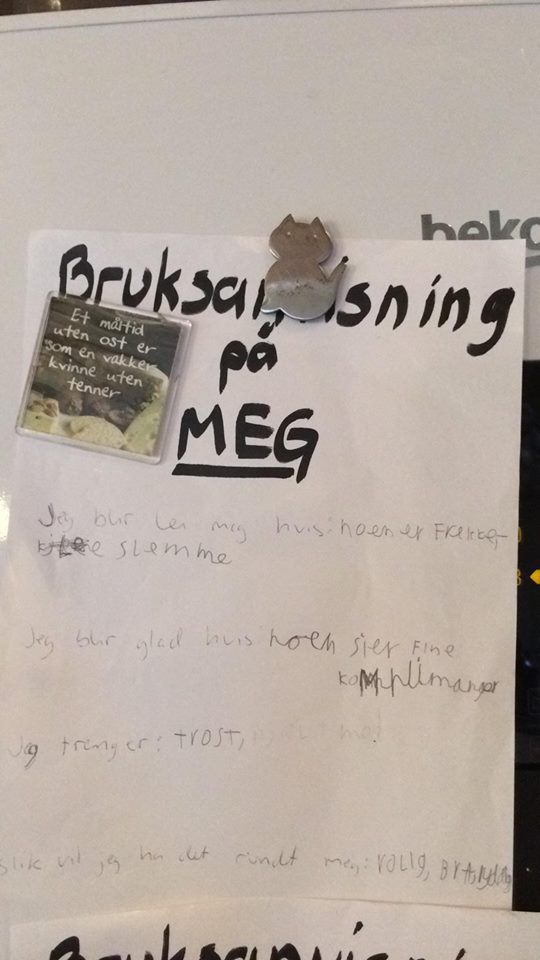 beko
Bruksanvisning
på
MEG
Et måltid
uten ost er
som en vakker
kvinne uten
tenner
Jeg blir lei meg hvis: noen er Frekke
slemme
Jeg blir glad hvis noen sier Fine
komplimanger
Jeg trenger: TROST,
slik vil jeg ha det rundt meg: rolig, BRA, ryddig
Bruksanvisni